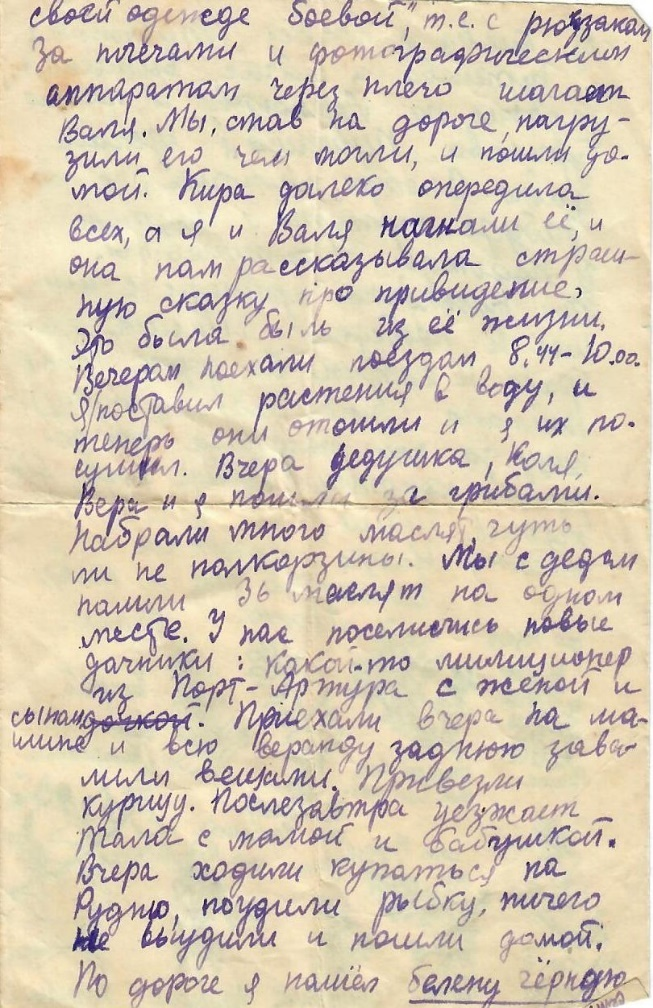 своей одежде боевой", т.е. с рюкзаком
за плечами и фотографическим
аппаратом через плечо шагает
Валя. Мы, став на дороге, нагру-
зили его чем могли, и пошли до-
мой. Кира далеко опередила
всех, а я и Валя нагнали её, и
она нам рассказывала страш-
ную сказку про привидение,
Это была быль из её жизни.
Вечером поехали поездом 8.44-10.00.
Я поставил растения в воду, и
теперь они отошли и я их по-
сушил. Вчера дедушка, Коля,
Вера и я пошли за грибами.
Набрали много маслят, чуть
ли не полкорзины. Мы с дедом
нашли 36 маслят на одном
месте. У нас поселились новые
дачники: какой-то милиционер
из Порт-Артура с женой и
сыном дочкой. Приехали вчера на ма-
шине и всю веранду заднюю зава-
лили вещами. Привезли
курицу. Послезавтра уезжает
Тала с мамой и бабушкой.
Вчера ходили купаться на
Рудню, поудили рыбку, ничего
не выудили и пошли домой.
По дороге я нашёл белену чёрную